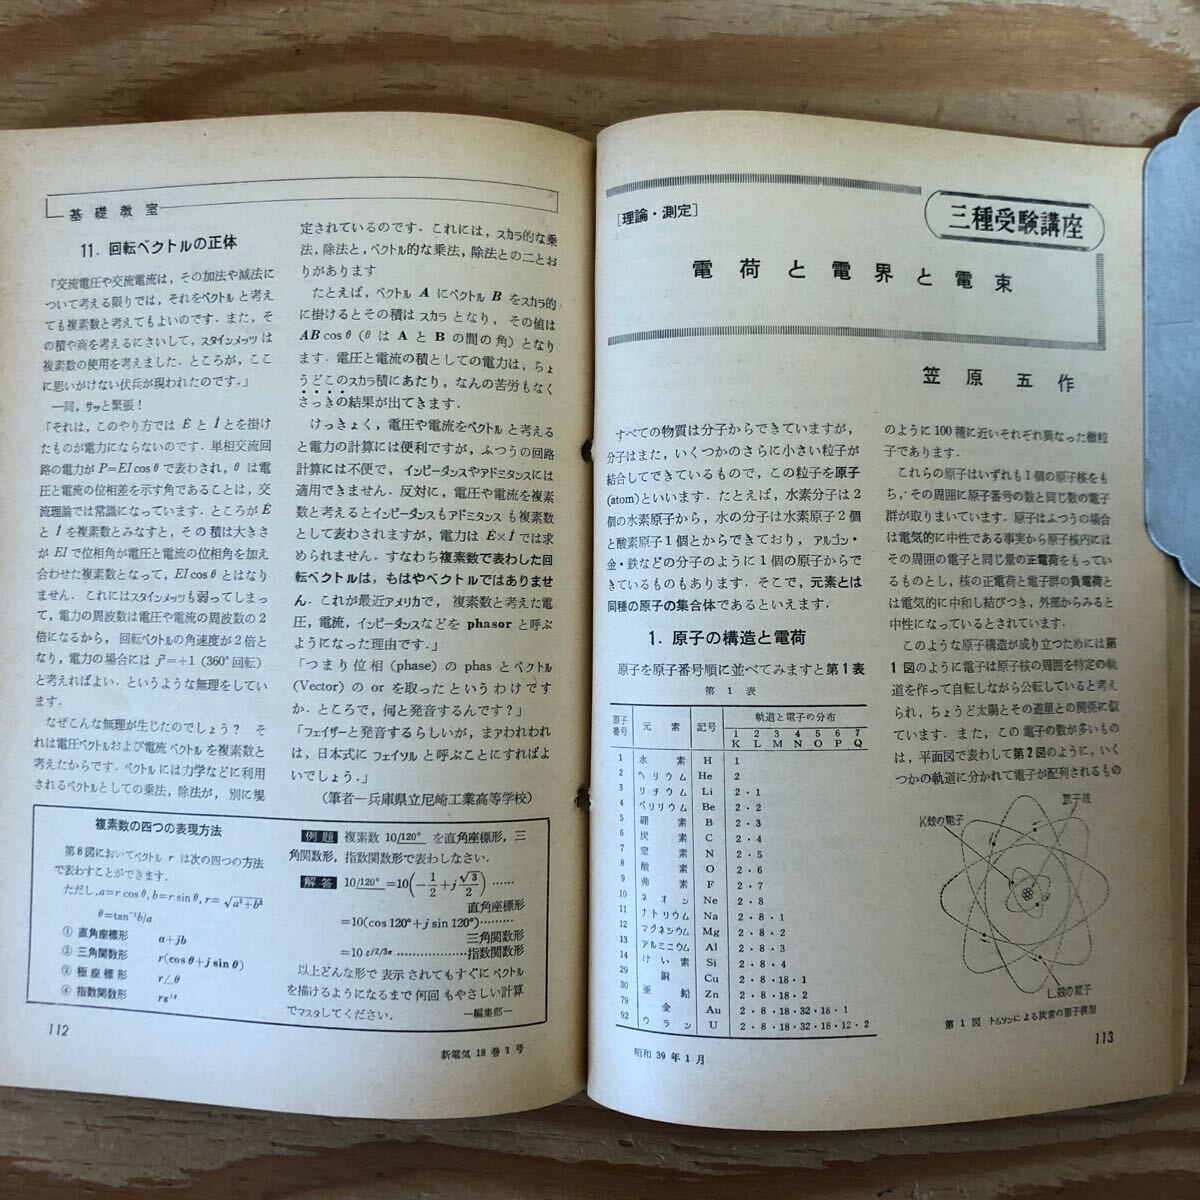 基礎教室
11. 回転ベクトルの正体
「交流電圧や交流電流は，その加法や減法に
ついて考える限りでは，それをベクトルと考え
ても複素数と考えてもよいのです．また，そ
の積や商を考えるにさいして，スタインメッツは
複素数の使用を考えました．ところが，ここ
に思いがけない伏兵が現われたのです．」
一同，サッと緊張！
「それは，このやり方では Ė と İ とを掛け
たものが電力にならないのです．単相交流回
路の電力が P=EI cos θ で表わされ，θ は電
圧と電流の位相差を示す角であることは，交
流理論では常識になっています．ところが Ė
と İ を複素数とみなすと，その積は大きさ
が EI で位相角が電圧と電流の位相角を加え
合わせた複素数となって，EI cos θ とはなり
ません．これにはスタインメッツも弱ってしまっ
て，電力の周波数は電圧や電流の周波数の2
倍になるから，回転ベクトルの角速度が2倍と
なり，電力の場合には j²=+1 (360°回転)
と考えればよい．というような無理をしてい
ます．
なぜこんな無理が生じたのでしょう？ そ
れは電圧ベクトルおよび電流ベクトルを複素数と
考えたからです．ベクトルには力学などに利用
されるベクトルとしての乗法，除法が，別に規
定されているのです．これには，スカラ的な乗
法，除法と，ベクトル的な乗法，除法との二とお
りがあります
たとえば，ベクトル A にベクトル B をスカラ的
に掛けるとその積はスカラとなり，その値は
AB cos θ (θ は A と B の間の角) となり
ます．電圧と電流の積としての電力は，ちょ
うどこのスカラ積にあたり，なんの苦労もなく
さっきの結果が出てきます．
けっきょく，電圧や電流をベクトルと考える
と電力の計算には便利ですが，ふつうの回路
計算には不便で，インピーダンスやアドミタンスには
適用できません．反対に，電圧や電流を複素
数と考えるとインピーダンスもアドミタンスも複素数
として表わされますが，電力は Ė×İ では求
められません．すなわち複素数で表わした回
転ベクトルは，もはやベクトルではありませ
ん．これが最近アメリカで，複素数と考えた電
圧，電流，インピーダンスなどを phasor と呼ぶ
ようになった理由です．」
「つまり位相 (phase) の phas とベクトル
(Vector) の or を取ったというわけです
か．ところで，何と発音するんです？」
「フェイザーと発音するらしいが，まアわれわれ
は，日本式にフェイソルと呼ぶことにすればよ
いでしょう．」
(筆者—兵庫県立尼崎工業高等学校)
複素数の四つの表現方法
第8図においてベクトル r は次の四つの方法
で表わすことができます．
ただし，a=r cos θ, b=r sin θ, r=√a²+b²
θ=tan⁻¹b/a
① 直角座標形 a+jb
② 三角関数形 r(cos θ+j sin θ)
③ 極座標形 r∠θ
④ 指数関数形 rεʲᶿ
例題 複素数 10/120° を直角座標形，三
角関数形，指数関数形で表わしなさい．
解答 10/120° =10(-1/2+j√3/2) ……
直角座標形
=10(cos 120°+j sin 120°)………
三角関数形
=10 εj2/3π ………………指数関数形
以上どんな形で表示されてもすぐにベクトル
を描けるようになるまで何回もやさしい計算
でマスタしてください． —編集部—
112
新電気 18 巻 1 号
[理論・測定]
三種受験講座
電荷と電界と電束
笠原五作
すべての物質は分子からできていますが，
分子はまた，いくつかのさらに小さい粒子が
結合してできているもので，この粒子を原子
(atom)といいます．たとえば，水素分子は2
個の水素原子から，水の分子は水素原子2個
と酸素原子1個とからできており，アルゴン・
金・鉄などの分子のように1個の原子からで
きているものもあります．そこで，元素とは
同種の原子の集合体であるといえます．
1. 原子の構造と電荷
原子を原子番号順に並べてみますと第1表
第1表
原子番号 元素 記号 軌道と電子の分布
1 2 3 4 5 6 7
K L M N O P Q
1 水素 H 1
2 ヘリウム He 2
3 リチウム Li 2・1
4 ベリリウム Be 2・2
5 硼素 B 2・3
6 炭素 C 2・4
7 窒素 N 2・5
8 酸素 O 2・6
9 弗素 F 2・7
10 ネオン Ne 2・8
11 ナトリウム Na 2・8・1
12 マグネシウム Mg 2・8・2
13 アルミニウム Al 2・8・3
14 けい素 Si 2・8・4
29 銅 Cu 2・8・18・1
30 亜鉛 Zn 2・8・18・2
79 金 Au 2・8・18・32・18・1
92 ウラン U 2・8・18・32・18・12・2
のように100種に近いそれぞれ異なった微粒
子であります．
これらの原子はいずれも1個の原子核をも
ち，その周囲に原子番号の数と同じ数の電子
群が取りまいています．原子はふつうの場合
は電気的に中性である事実から原子核内には
その周囲の電子と同じ量の正電荷をもってい
るものとし，核の正電荷と電子群の負電荷と
は電気的に中和し結びつき，外部からみると
中性になっているとされています．
このような原子構造が成り立つためには第
1図のように電子は原子核の周囲を特定の軌
道を作って自転しながら公転していると考え
られ，ちょうど太陽とその遊星との関係に似
ています．また，この電子の数が多いもの
は，平面図で表わして第2図のように，いく
つかの軌道に分かれて電子が配列されるもの
原子核
K殻の電子
L殻の電子
第1図 トムソンによる炭素の原子模型
昭和 39 年 1 月
113